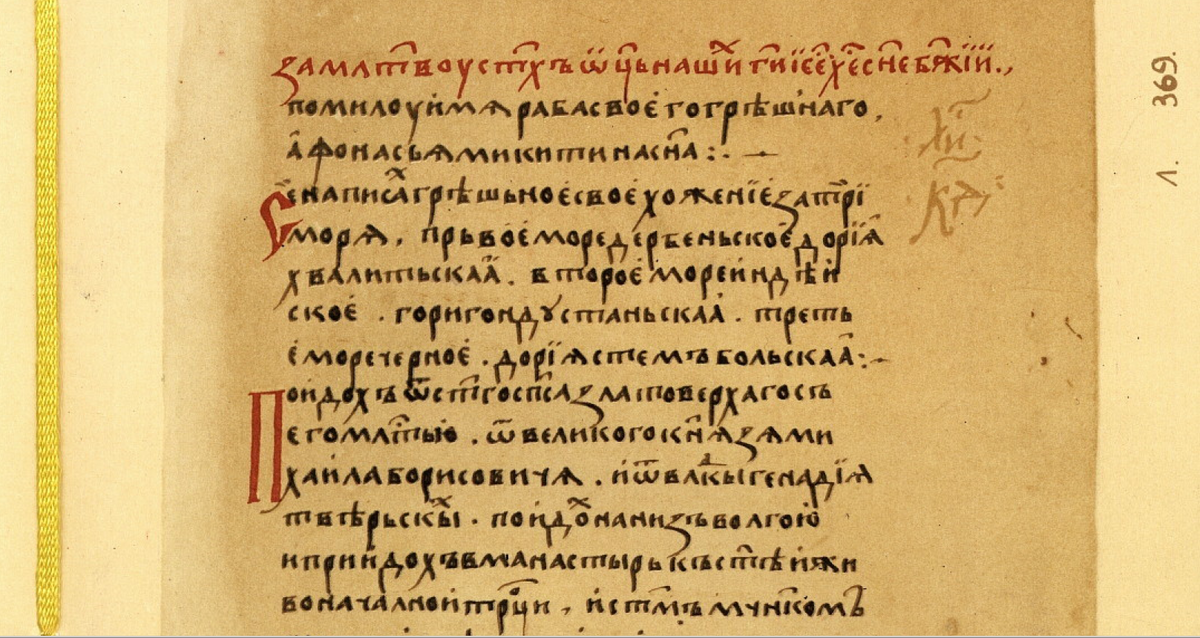 замлт҃воустх҃ъѿц҃ьнашⷯигиі҃ее҃хе҃сн҃ебж҃їи.,
помилоуимѧрабасвоегогрѣшнаго.
афонасьѧмикитинасн҃а:.—
Сенаписагрⷯѣшьноесвоехоженїезатрї
морѧ. прьвоеморедербеньскоедорїѧ
хвалитьскаа. второемореиндѣи
ское. горигондустаньскаа. треть
еморечерное. дорїѧстемъбольскаа:—
Поидохъѿст҃госпс҃азлатоверхагосъ
егомлт҃ью. ѿвеликогокнѧ҃зѧми
хаилаборисовичѧ. иѿвлк҃ыгенадїѧ
тверьскⷯы. поидⷯонанизъволгою
ипріидохъвманастырькъст҃ѣиживоначалнои
воначалноитрц҃и. истм҃ъмчн҃комъ
л. 369.